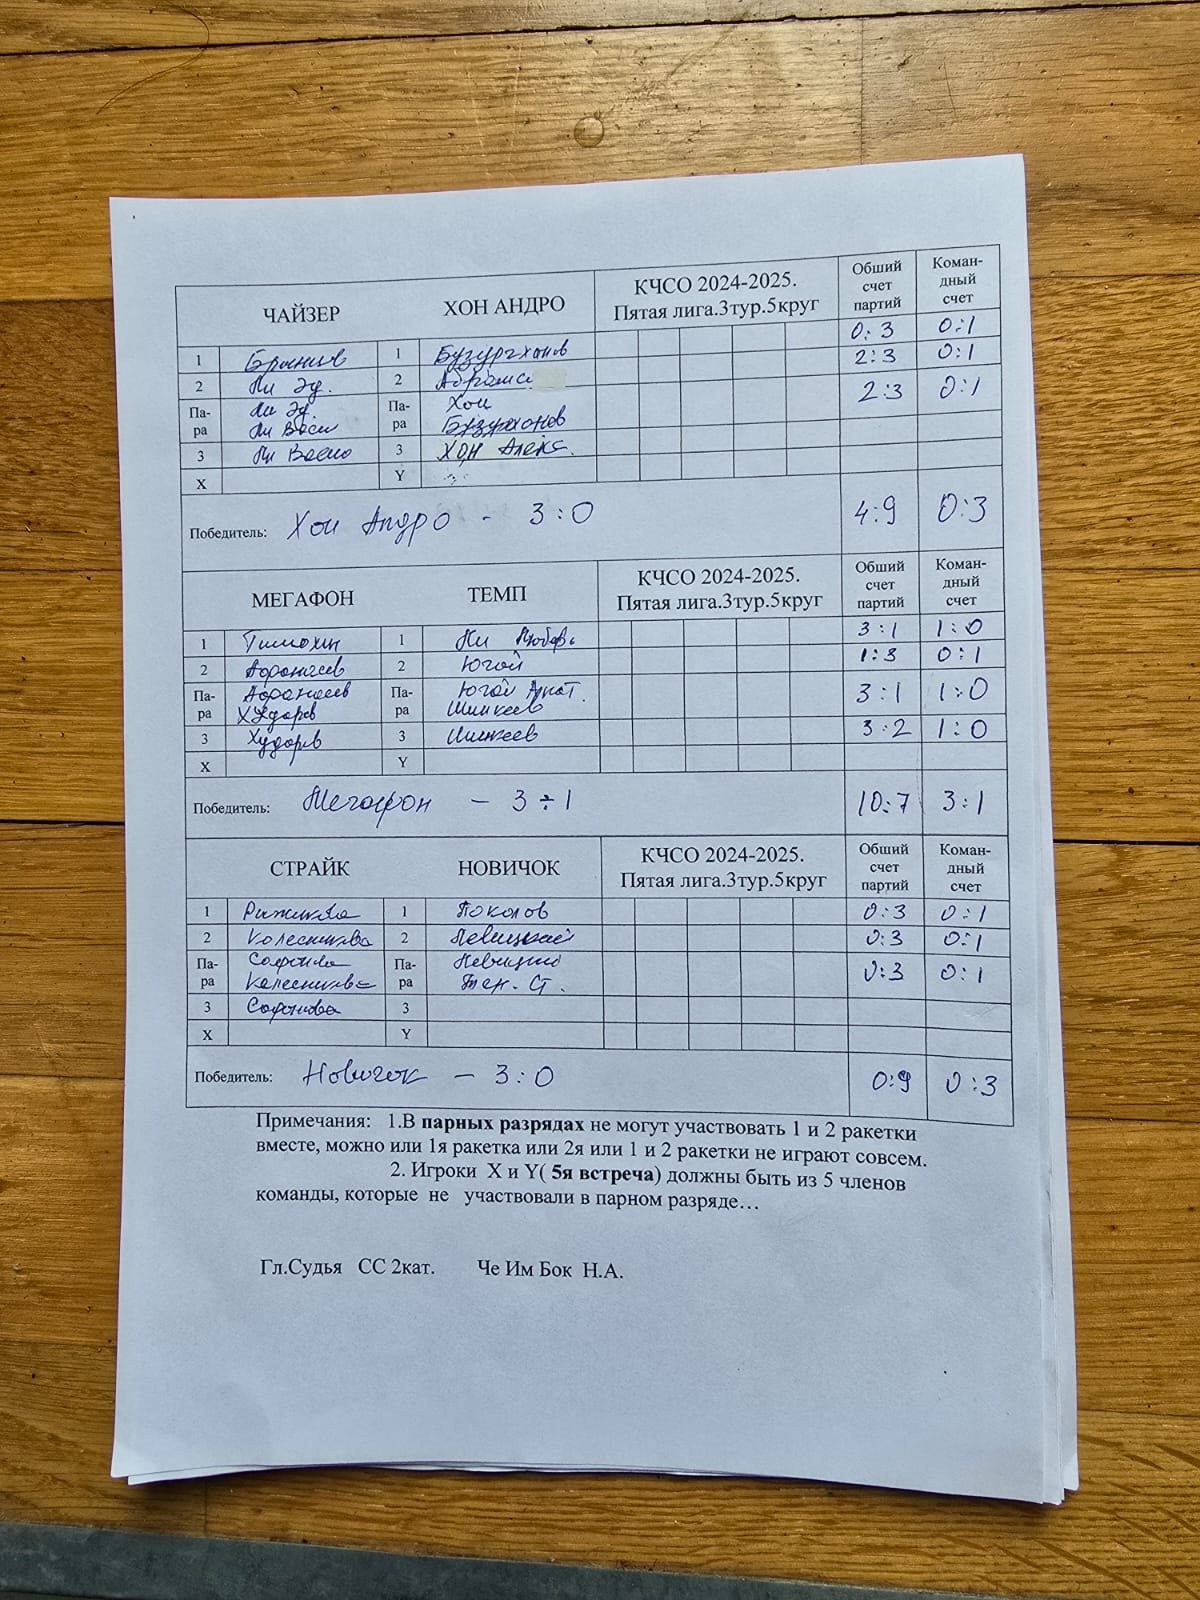 ЧАЙЗЕР ХОН АНДРО КЧСО 2024-2025. Пятая лига.3тур.5круг Обший счет партий Коман-дный счет
1 1 Бузургхонов 0:3 0:1
2 Ли Эд. 2 2:3 0:1
Па-ра Ли Эд. Па-ра Хон 2:3 0:1
Ли Васи Бузурхонов
3 Ли Васио 3 ХОН Алекс.
X Y
Победитель: Хон Андро - 3:0 4:9 0:3
МЕГАФОН ТЕМП КЧСО 2024-2025. Пятая лига.3тур.5круг Обший счет партий Коман-дный счет
1 Тимохин 1 Ли Любовь 3:1 1:0
2 2 Югай 1:3 0:1
Па-ра Па-ра Югай Анат. 3:1 1:0
Худоров
3 Худорев 3 3:2 1:0
X Y
Победитель: Мегафон - 3÷1 10:7 3:1
СТРАЙК НОВИЧОК КЧСО 2024-2025. Пятая лига.3тур.5круг Обший счет партий Коман-дный счет
1 1 0:3 0:1
2 Колесникова 2 Левицкий 0:3 0:1
Па-ра Софонова Па-ра 0:3 0:1
Колесникова Тен. Ст.
3 Софонова 3
X Y
Победитель: Новичок - 3:0 0:9 0:3
Примечания: 1.В парных разрядах не могут участвовать 1 и 2 ракетки
вместе, можно или 1я ракетка или 2я или 1 и 2 ракетки не играют совсем.
2. Игроки X и Y( 5я встреча) должны быть из 5 членов
команды, которые не участвовали в парном разряде…
Гл.Судья СС 2кат. Че Им Бок Н.А.